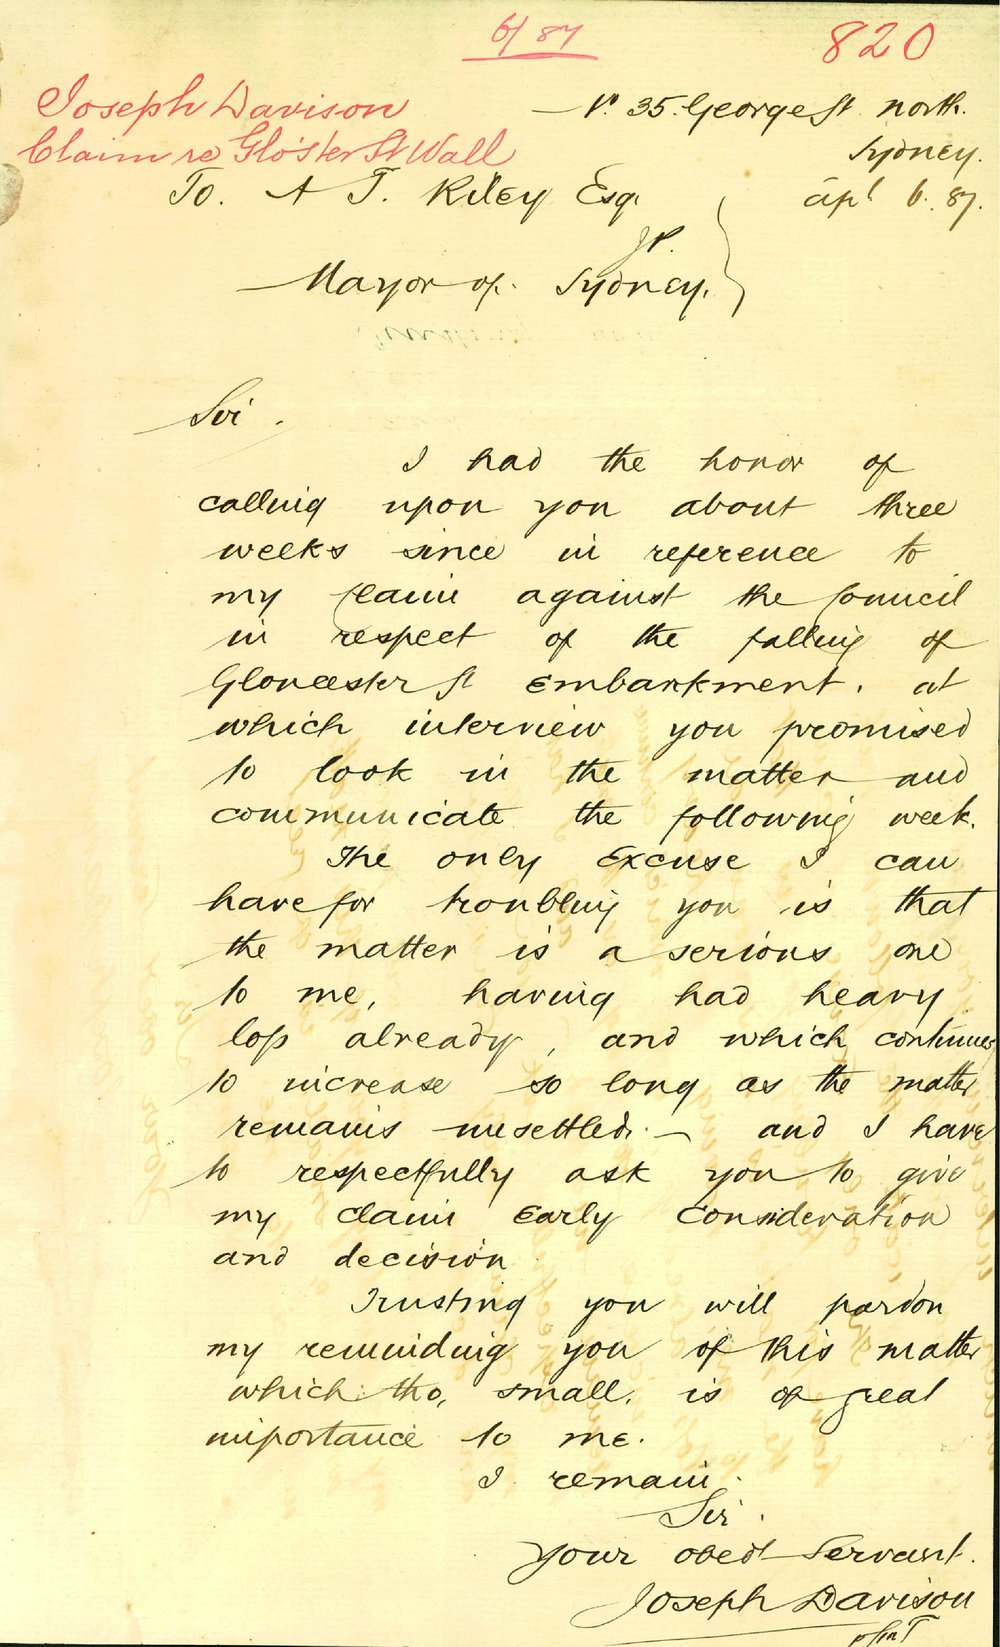 6/87
820
Joseph Davison
Claim re Glo'ster St Wall
No. 35. George St north.
Sydney.
To. A T. Riley Esq.
apl 6. 87.
JP.
Mayor of. Sydney.
Sir.
I had the honor of
calling upon you about three
weeks since in reference to
my claim against the Council
in respect of the falling of
Gloucester St Embankment. at
which interview you promised
to look in the matter and
communicate the following week.
The only Excuse I can
have for troubling you is that
the matter is a serious one
to me, having had heavy
loss already, and which continues
to increase so long as the matter
remains unsettled. — and I have
to respectfully ask you to give
my claim Early Consideration
and decision
Trusting you will pardon
my reminding you of this matter
which tho, small, is of great
importance to me.
I remain.
Sir.
Your obedt Servant.
Joseph Davison